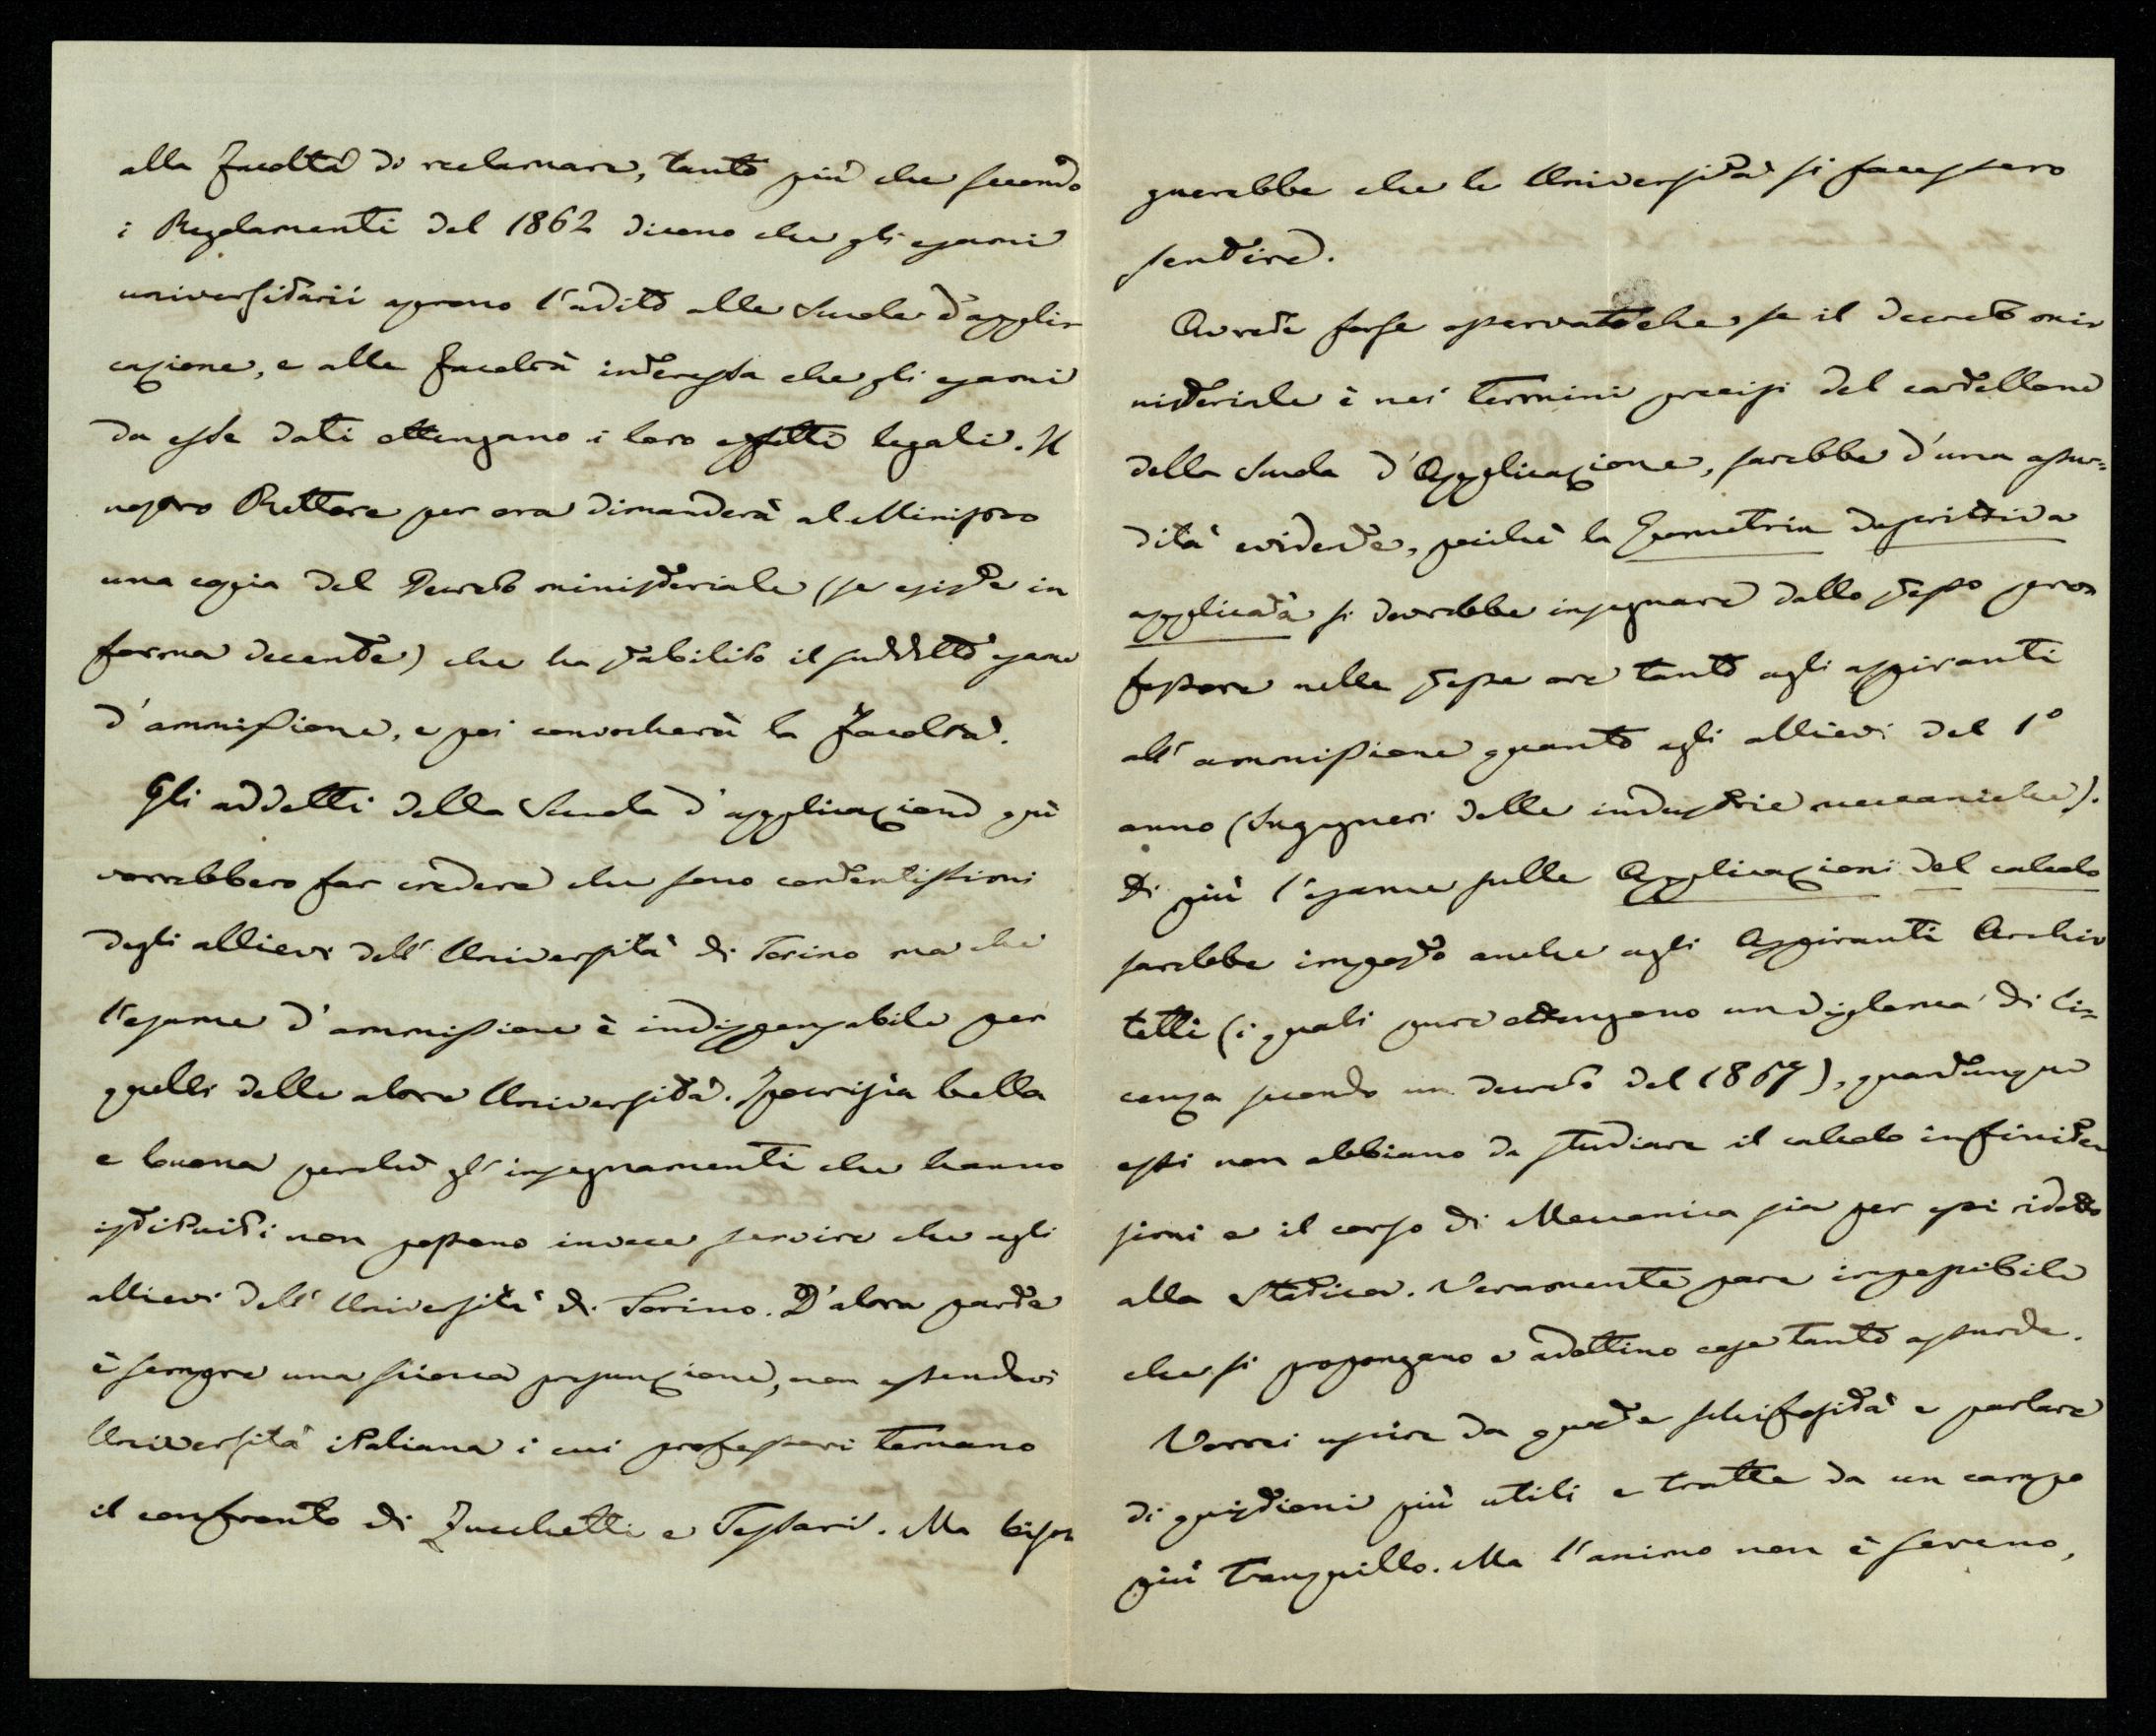 alla Facoltà di reclamare, tanto più che secondo
i Regolamenti del 1862 dicono che gli esami
universitarii aprono l'adito alla Scuola d'appli-
cazione, e alla Facoltà interessa che gli esami
da essa dati ottengano i loro effetti legali. Il
nostro Rettore per ora dimanderà al Ministro
una copia del Decreto ministeriale (se esiste in
forma decente) che ha stabilito il suddetto esame
d'ammissione, e poi convocherà la Facoltà.
Gli addetti della Scuola d'applicazione qui
vorrebbero far credere che sono contentissimi
degli allievi dell'Università di Torino ma che
l'esame d'ammissione è indispensabile per
quelli delle altre Università. Ipocrisia bella
e buona perchè gl'insegnamenti che hanno
istituiti non possono invece servire che agli
allievi dell'Università di Torino. D'altra parte
è sempre una sciocca presunzione, non essendovi
Università italiana i cui professori temano
il confronto di Zucchetti e Tessari. Ma biso-
gnerebbe che le Università si facessero
sentire.
Avrete forse osservato che se il decreto mi-
nisteriale è nei termini precisi del cartellone
della Scuola d'Applicazione, sarebbe d'una assur-
dità evidente, poichè la Geometria descrittiva
applicata si dovrebbe insegnare dallo stesso pro-
fessore nelle stesse ore tanto agli aspiranti
all'ammissione quanto agli allievi del 1º
anno (Ingegneri delle industrie meccaniche).
Di più l'esame sulle Applicazioni del calcolo
sarebbe imposto anche agli Aspiranti Archi-
tetti (i quali pure ottengono un diploma di li-
cenza secondo un decreto del 1867), quantunque
essi non abbiano da studiare il calcolo infinite-
simi e il corso di Meccanica sia per essi ridotto
alla Statica. Veramente pare impossibile
che si propongano e adottino cose tanto assurde.
Vorrei uscire da queste schifosità e parlare
di quistioni più utili e tratte da un campo
più tranquillo. Ma l'animo non è sereno,